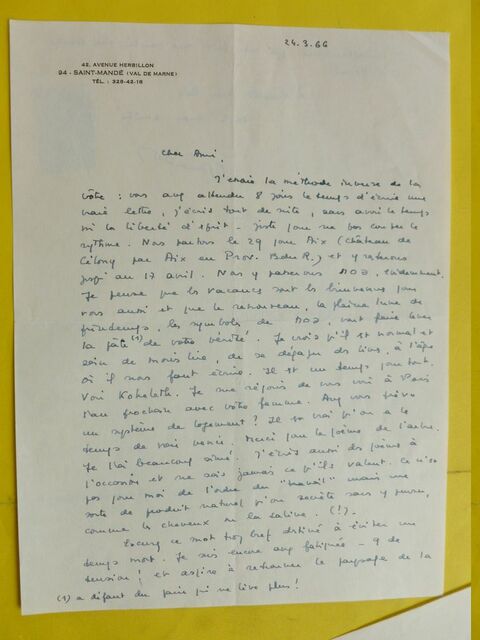 24.3.66
42, AVENUE HERBILLON
94 - SAINT-MANDÉ (VAL DE MARNE)
TÉL. : 328-42-18
Cher Ami,
J'essaie la méthode inverse de la
vôtre : vous avez attendu 8 jours le temps d'écrire une
vraie lettre, j'écris tout de suite, sans avoir le temps
ni la liberté d'esprit - juste pour ne pas couper le
rythme. Nous partons le 29 pour Aix (Château de
par Aix en Prov. B du R.) et y resterons
jusqu'au 17 avril. Nous y passerons évidemment.
Je pense que les vacances sont les bienvenues pour
vous aussi et que le renouveau, la pleine lune de
printemps, les symboles de vont faire lever
la pâte (1) de votre vérité. Je crois qu'il est normal et
sain de moins lire, de se dégager des livres, à l'âge
où il nous faut écrire. Il est un temps pour tout.
Voir Koheleth. Je me réjouis de vous voir à Paris
l'an prochain avec votre femme. Avez vous prévu
un système de logement ? Il est vrai qu'on a le
temps de voir venir. Merci pour le poème de l'arbre.
Je l'ai beaucoup aimé. J'écris aussi des poèmes à
l'occasion et ne sais jamais ce qu'ils valent. Ce n'est
pas pour moi de l'ordre du "travail" mais une
sorte de produit naturel qu'on secrète sans y penser,
comme les cheveux ou la salive. (!).
Excusez ce mot trop bref destiné à éviter une
temps mort. Je suis encore assez fatiguée -
tension ! et aspire à retrouver le paysage de la
(1) à défaut du pain qui ne lève plus !